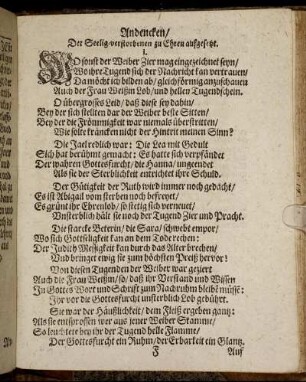 Andencken/
Der Seelig-verstorbenen zu Ehren aufgesetzt.
1.
WO sonst der Weiber Zier mag eingezeichnet seyn/
Wo ihre Tugend sich der Nachricht kan vertrauen/
Da möcht ich bilden ab/ gleichförmig anzuschauen
Auch der Frau Weitzin Lob/ und hellen Tugendschein.
O übergrosses Leid/ daß diese sey dahin/
Bey der sich stellten dar der Weiber beste Sitten/
Bey der die Frömmigkeit war niemals überstritten/
Wie solte kräncken nicht der Hintrit meinen Sinn?
Die Jael redlich war: Die Lea mit Gedult
Sich hat berühmt gemacht: Es hatte sich verpfändet
Der wahren Gottesfurcht/ die Hanna/ umgewendet
Als sie der Sterblichkeit entrichtet ihre Schuld.
Der Gütigkeit der Ruth wird immer noch gedacht/
Es ist Abigail vom sterben noch befreyet/
Es grünt ihr Ehrenlob/ so stetig sich verneuet/
Unsterblich hält sie noch der Tugend Zier und Pracht.
Die starcke Beterin/ die Sara/ schwebt empor/
Wo sich Gottseligkeit kan an dem Tode rechen:
Der Judith Mesigkeit kan durch das Alter brechen/
Und bringet ewig sie zum höchsten Preiß hervor!
Von diesen Tugenden der Weiber war geziert
Auch die Frau Weitzin/ so/ daß ihr Verstand und Wissen
In Gottes Wort und Schrifft zum Nachruhm bleibt müsse:
Ihr vor die Gottesfurcht unsterblich Lob gebührt.
Sie war der Häußlichkeit/ dem Fleiß ergeben gantz:
Als sie entsprossen war aus jener Weiber Stamme/
So leuchtete bey ihr der Tugend helle Flamme/
Der Gottesfurcht ein Ruhm/ der Erbarkeit ein Glantz.
F
Auf